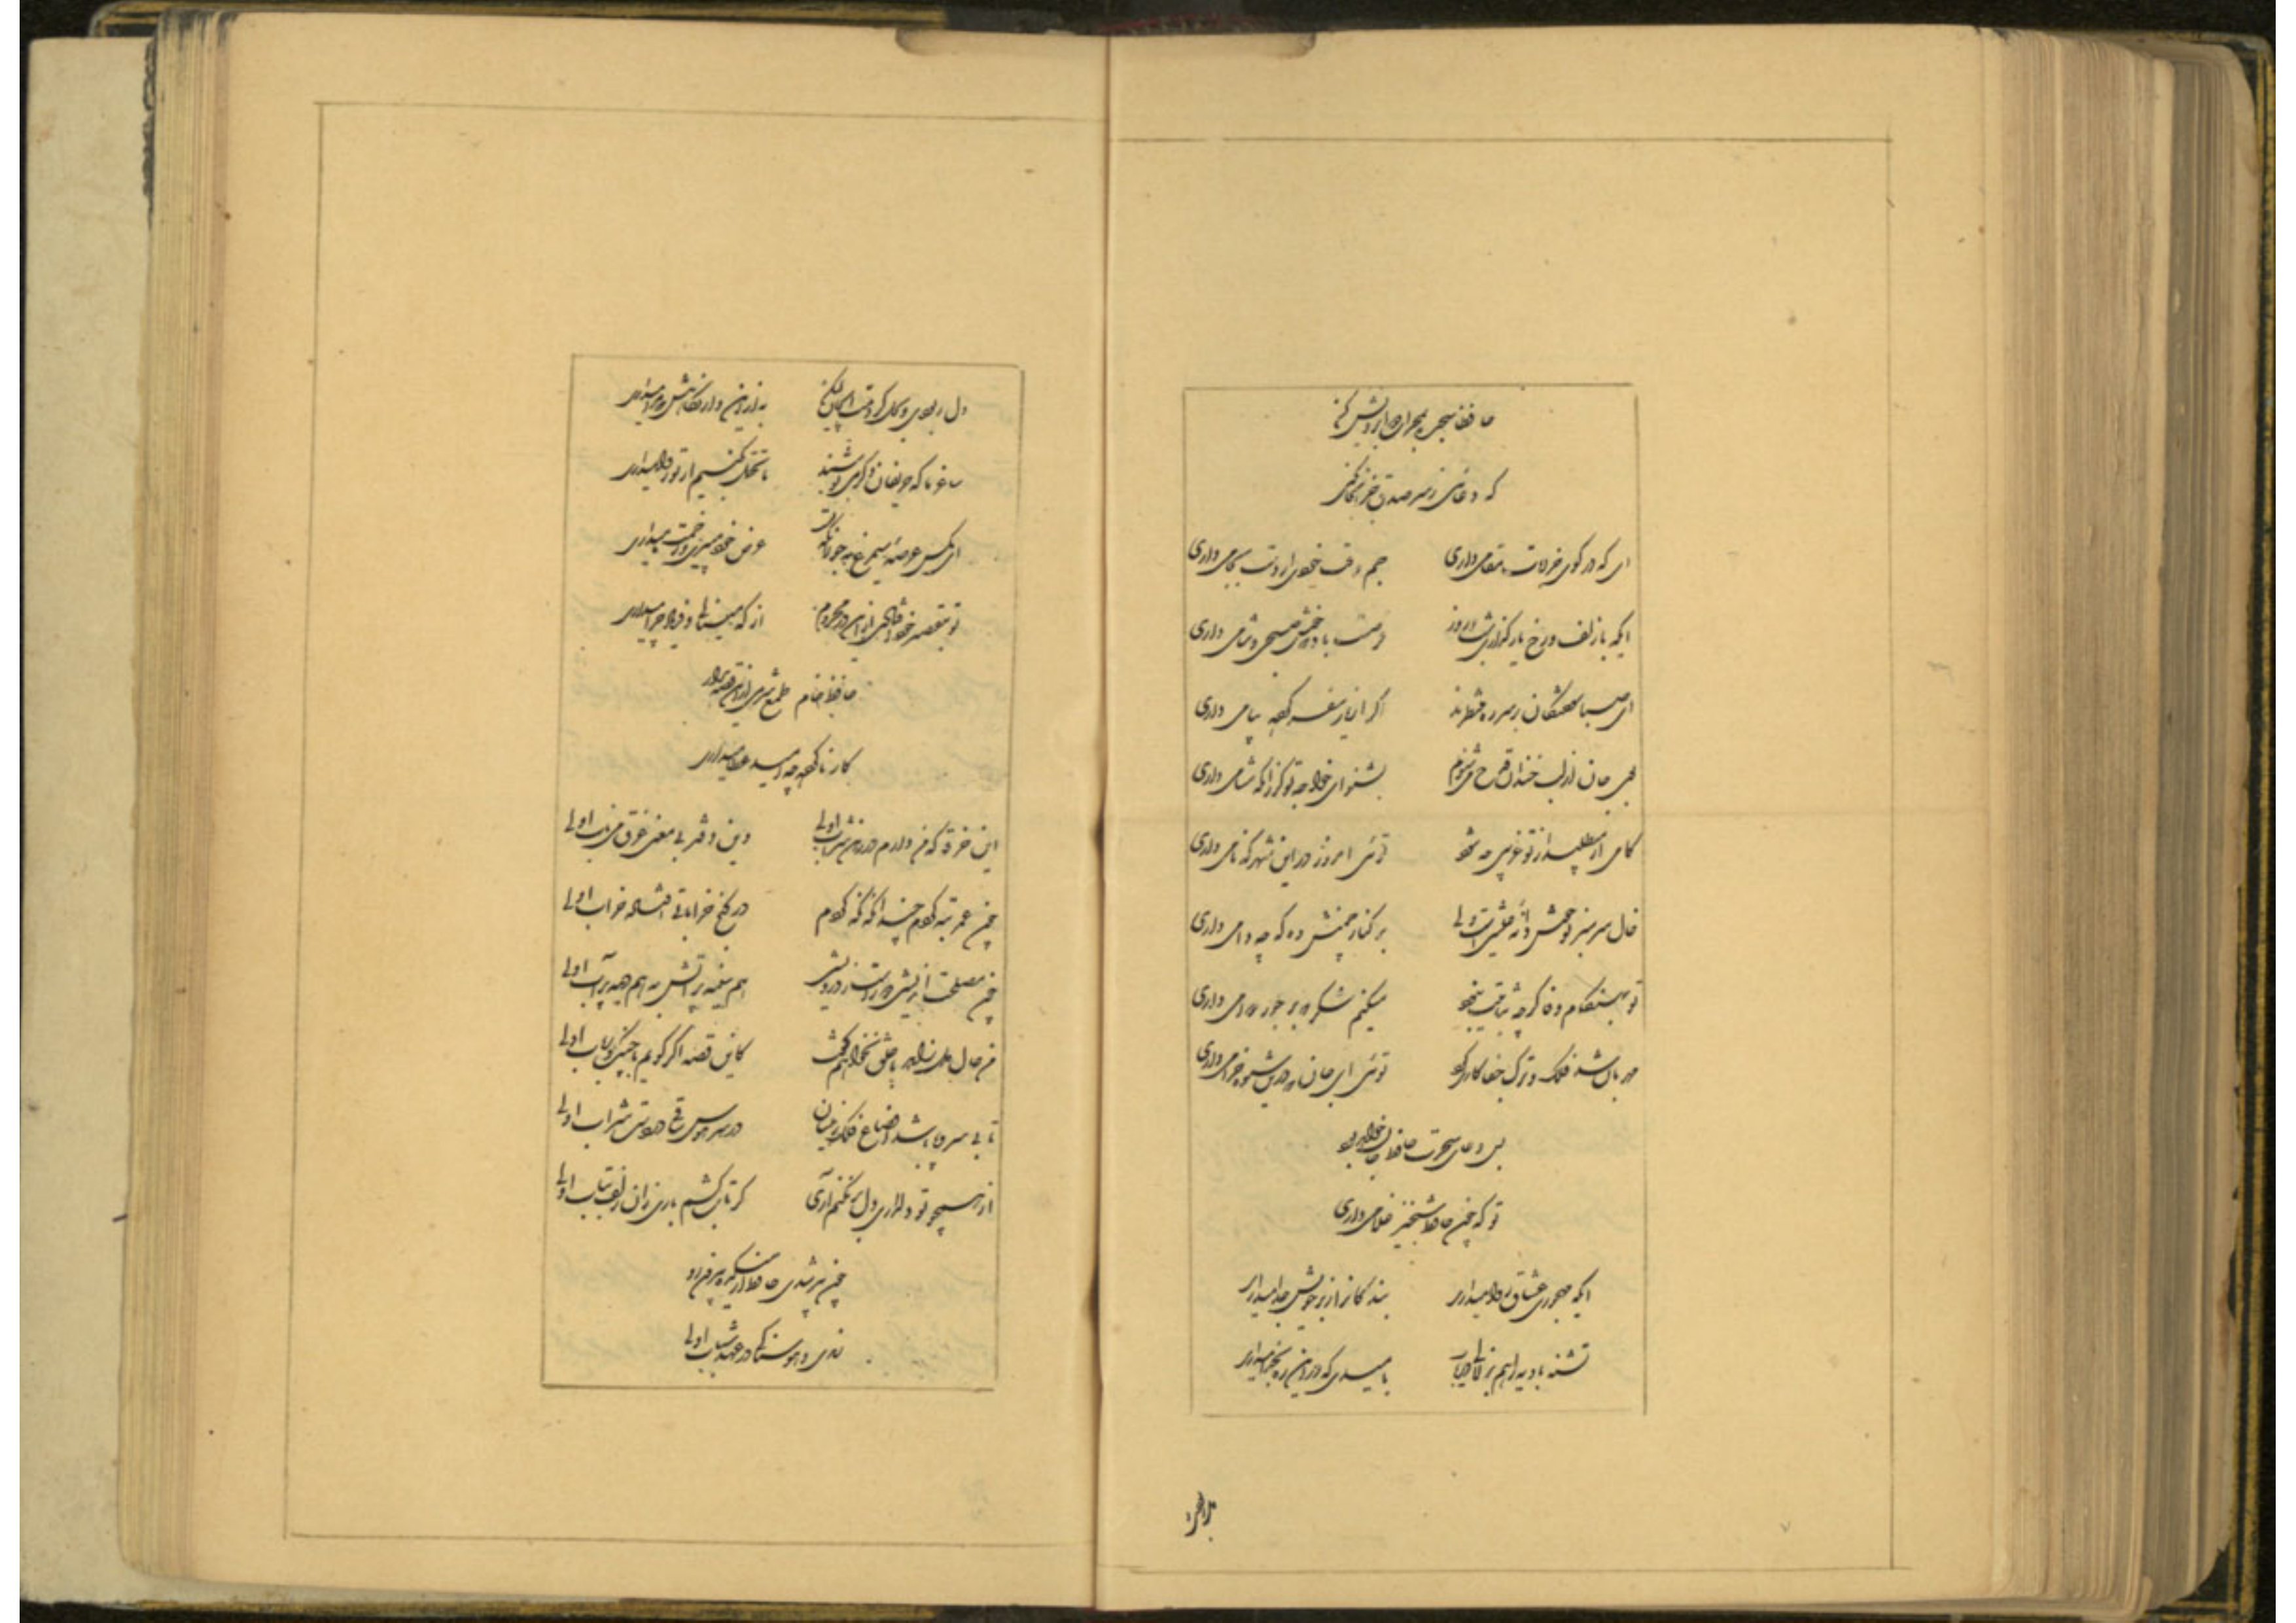 حافظا سجده به محراب دو ابرویش کن
که دعائی ز سر صدق جز آنجا نکنی
ای که در کوی خرابات مقامی داری جم وقت خودی ار دست بجامی داری
ایکه با زلف و رخ یار گذاری شب و روز فرصتت باد که خوش صبحی و شامی داری
ای صبا سوختگان بر سر ره منتظرند اگر از یار سفر کرده پیامی داری
بوی جان از لب خندان قدح میشنوم بشنو ای خواجه تو گر زانکه مشامی داری
کامی ار میطلبد از تو غریبی چه شود توئی امروز در این شهر که نامی داری
خال سرسبز تو خوش دانه عیشی است ولی بر کنار چمنش وه که چه دامی داری
تو بهنگام وفا گرچه ثباتیت نبود میکنم شکر که بر جور دوامی داری
مهربان شد فلک و ترک جفاکاری کرد توئی ای جان که درین شیوه خرامی داری
بس دعای سحرت حافظ جان خواهد بود
تو که چون حافظ شبخیز غلامی داری
ایکه مهجوری عشاق روا میداری بندگانرا ز بر خویش جدا میداری
تشنه بادیه را هم بزلالی دریاب بامیدی که درین ره بخدا میداری
دل ربودی و بحل کردمت ای جان لیکن به ازین دار نگاهش که مرا میداری
ساغر ما که حریفان دگر می‌نوشند ما تحمل نکنیم ار تو روا میداری
ای مگس عرصه سیمرغ نه جولانگه تست عرض خود میبری و زحمت ما میداری
تو بتقصیر خود افتادی ازین در محروم از که مینالی و فریاد چرا میداری
حافظ خام طمع شرمی ازین قصه بدار
کار ناکرده چه امید عطا میداری
این خرقه که من دارم در رهن شراب اولی وین دفتر بی معنی غرق می ناب اولی
چون عمر تبه کردم چندانکه نگه کردم در کنج خراباتی افتاده خراب اولی
چون مصلحت اندیشی دور است ز درویشی هم سینه پر آتش به هم دیده پر آب اولی
من حال دل زاهد با خلق نخواهم گفت کاین قصه اگر گویم با چنگ و رباب اولی
تا بی سر و پا باشد اوضاع فلک زینسان در سر هوس ساقی در دست شراب اولی
از همچو تو دلداری دل بر نکنم آری گر تاب کشم باری زان زلف بتاب اولی
چون پیر شدی حافظ از میکده بیرون رو
رندی و هوسناکی در عهد شباب اولی